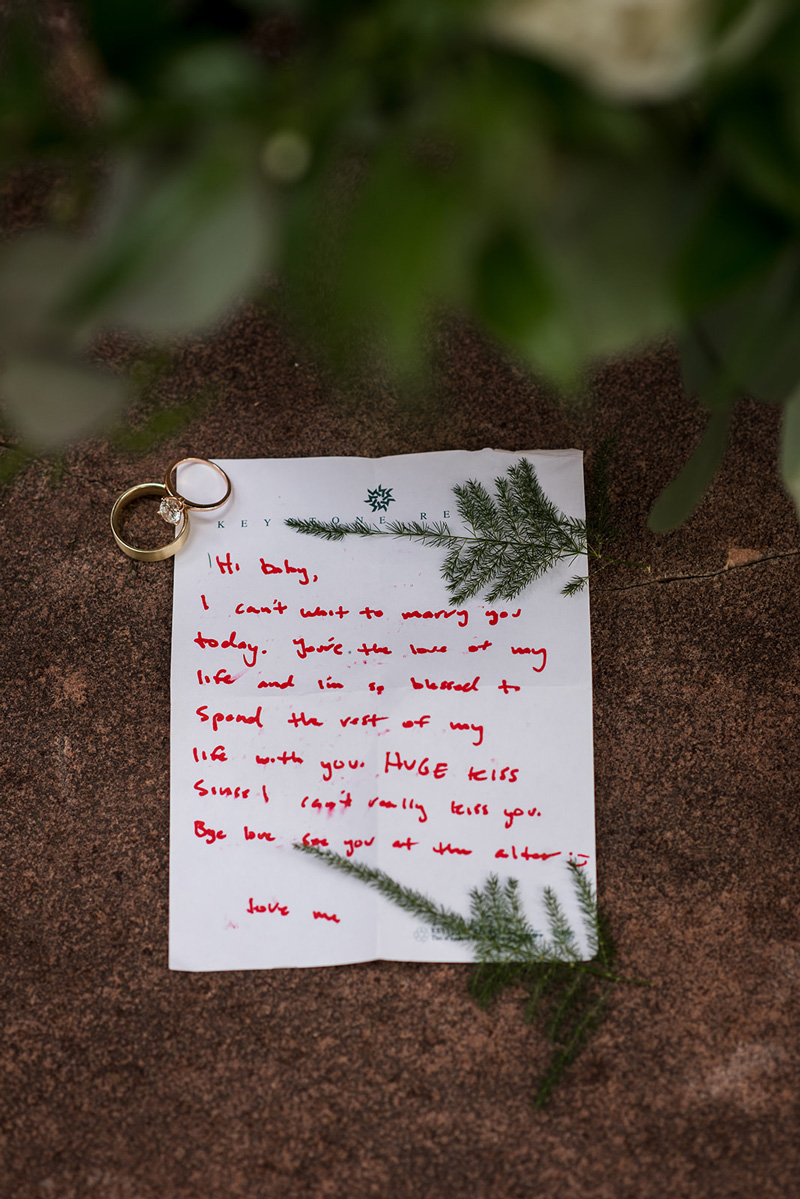 KEYSTONE RE
Hi baby,
I can't wait to marry you
today. You're the love of my
life and I'm so blessed to
Spend the rest of my
life with you. HUGE kiss
Since I can't really kiss you.
Bye love see you at the alter :)
love me